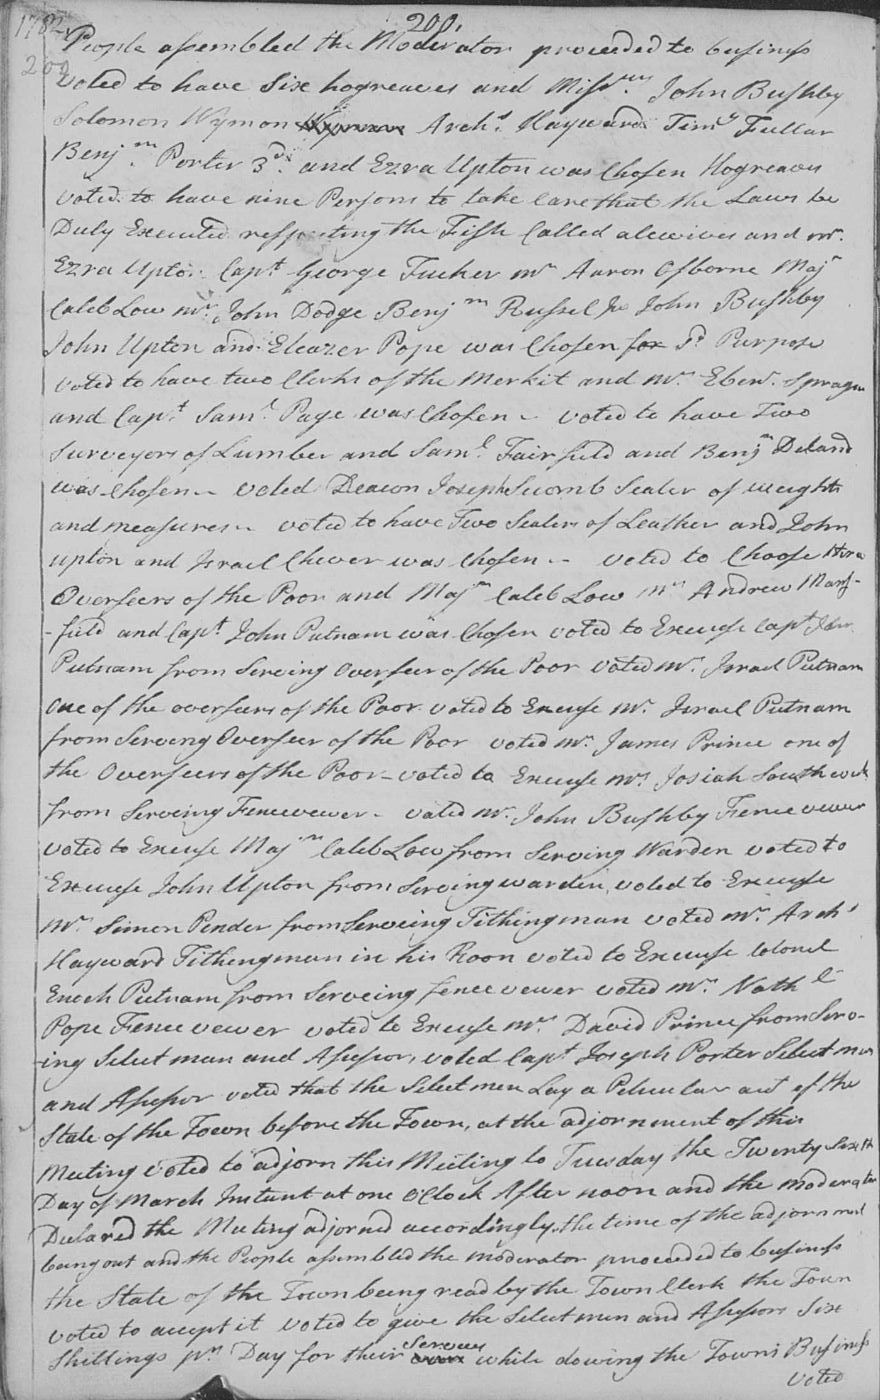 200.
178
200
People assembled the Moderator proceeded to business
Voted to have Six hogreaves and Miss.rs John Bushby
Solomon Wymon Wyman Arch.s Hayward Tim.y Fullar
Benj.m Porter 3.d and Ezra Upton was Chosen Hogreaves
voted to have nine Persons to take Care that the Laws be
Duly Executed respecting the Fish Called alewives and mr.
Ezra Upton Capt George Tucker mr Aaron Osborne Majr
Caleb Low mr. John Dodge Benj m Russel Jr John Bushby
John Upton and Eleazer Pope was Chosen for Sd Purpose
voted to have two Clerks of the Merkit and Mr. Eben.r Sprague
and Capt. Saml Page was Chosen - voted to have Two
Surveyors of Lumber and Saml. Fairfield and Benjm Deland
was Chosen - voted Deacon Joseph Seomb Sealer of weights
and measures - voted to have Two Sealers of Leather and John
upton and Israel Chever was Chosen - voted to Choose three
Overseers of the Poor and Majr Caleb Low Mr Andrew Mans-
-field and Capt. John Putnam was Chosen voted to Excuse Capt John
Putnam from Serveing Overseer of the Poor voted mr. Israel Putnam
one of the overseers of the Poor voted to Excuse Mr. Israel Putnam
from Serveng Overseer of the Poor voted mr. James Prince one of
the Overseers of the Poor - voted to Excuse mr. Josiah Southwick
from Serveing Fencevewer - voted mr. John Bushby Fence vewer
voted to Excuse Majr Caleb Low from Serving Warden voted to
Excuse John Upton from Serveing warden, voted to Excuse
Mr. Simon Pender from Serveing Tithingman voted mr. Archs
Hayward Tithengman in his Room voted to Excuse Colonel
Enoch Putnam from Serveing fence vewer voted mr. Nath l
Pope Fence vewer voted to Excuse Mr. David Prince from Serv-
-ing Select man and Assessor, voted Capt Joseph Porter Select man
and Assessor voted that the Select men Lay a Peticular act of the
State of the Town before the Town, at the adjornment of this
Meeting voted to adjorn this Meeting to Tuesday the Twenty Sixth
Day of March Instant at one OClock After noon and the moderator
Declared the Meeting adjorned accordingly. the time of the adjornment
being out and the People assembled the moderator proceeded to business
the State of the Town being read by the Town Clerk the Town
voted to accept it voted to give the Select men and Assessors Six
Shillings pr Day for their Serveces while dowing the Towns Business
voted